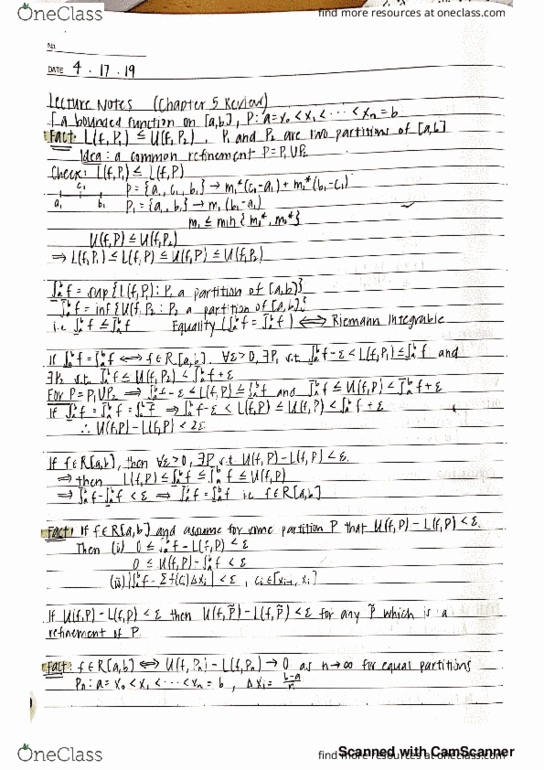 OneClass
find more resources at oneclass.com
No.
DATE 4 . 17 . 19
Lecture Notes (Chapter 5 Review)
f a bounded function on [a,b], P: a = x₀ < x₁ < ··· < xₙ = b
Fact: L(f, P₁) ≤ U(f, P₂), P₁ and P₂ are two partitions of [a,b]
Idea: a common refinement P = P₁ ∪ P₂
Check: L(f, P₁) ≤ L(f, P)
c₁ P = {a₁, c₁, b₁} → m₁*(c₁-a₁) + m₂*(b₁-c₁)
a₁ b₁ P₁ = {a₁, b₁} → m₁(b₁-a₁)
m₁ ≤ min{m₁*, m₂*}
U(f,P) ≤ U(f,P₂)
⇒ L(f,P₁) ≤ L(f,P) ≤ U(f,P) ≤ U(f,P₂)
∫ₐᵇ f = sup{L(f,P): P a partition of [a,b]}
∫ₐᵇ f = inf{U(f,P): P a partition of [a,b]}
i.e ∫ₐᵇ f ≤ ∫ₐᵇ f Equality (∫ₐᵇ f = ∫ₐᵇ f) ⟺ Riemann Integrable
If ∫ₐᵇ f = ∫ₐᵇ f ⟺ f ∈ R[a,b]. ∀ε > 0, ∃P₁ s.t. ∫ₐᵇ f - ε < L(f,P₁) ≤ ∫ₐᵇ f and
∃P₂ s.t. ∫ₐᵇ f ≤ U(f,P₂) < ∫ₐᵇ f + ε
For P = P₁ ∪ P₂ ⇒ ∫ₐᵇ f - ε ≤ L(f,P) ≤ ∫ₐᵇ f and ∫ₐᵇ f ≤ U(f,P) < ∫ₐᵇ f + ε
If ∫ₐᵇ f = ∫ₐᵇ f = ∫ₐᵇ f ⇒ ∫ₐᵇ f - ε < L(f,P) ≤ U(f,P) < ∫ₐᵇ f + ε
∴ U(f,P) - L(f,P) < 2ε
If f ∈ R[a,b], then ∀ε > 0, ∃P s.t. U(f,P) - L(f,P) < ε.
⇒ then L(f,P) ≤ ∫ₐᵇ f ≤ ∫ₐᵇ f ≤ U(f,P)
⇒ ∫ₐᵇ f - ∫ₐᵇ f < ε ⇒ ∫ₐᵇ f = ∫ₐᵇ f i.e f ∈ R[a,b]
Fact: If f ∈ R[a,b] and assume for some partition P that U(f,P) - L(f,P) < ε.
Then (i) 0 ≤ ∫ₐᵇ f - L(f,P) < ε
0 ≤ U(f,P) - ∫ₐᵇ f < ε
(ii) |∫ₐᵇ f - Σ f(cᵢ)Δxᵢ| < ε, cᵢ ∈ [xᵢ₋₁, xᵢ]
If U(f,P) - L(f,P) < ε then U(f,P̃) - L(f,P̃) < ε for any P̃ which is a
refinement of P.
Fact: f ∈ R[a,b] ⟺ U(f,Pₙ) - L(f,Pₙ) → 0 as n → ∞ for equal partitions
Pₙ: a = x₀ < x₁ < ··· < xₙ = b, Δxᵢ = (b-a)/n
OneClass
Scanned with CamScanner
find more resources at oneclass.com